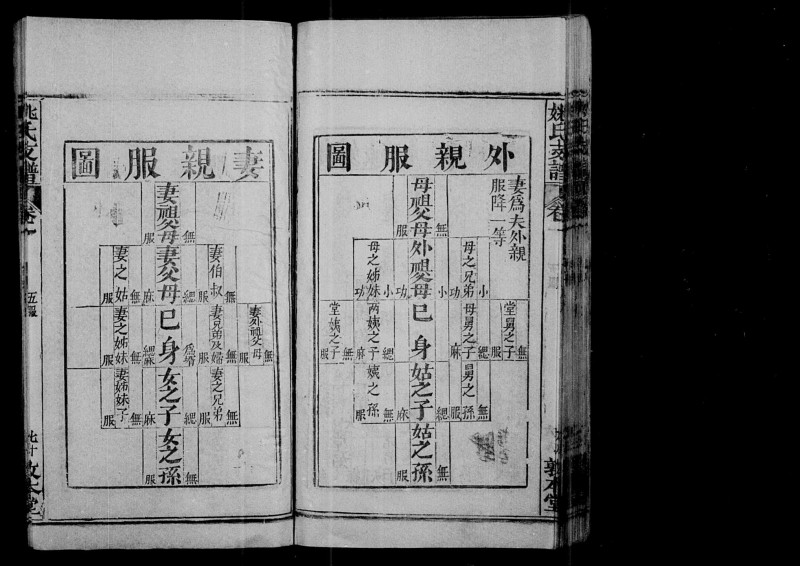 姚氏支譜
外親服圖
妻爲夫外親
服降一等
母祖父母
無服
外祖父母
小功
己身
姑之子
緦麻
姑之孫
無服
母之兄弟
小功
母舅之子
緦麻
舅之孫
無服
堂舅之子
無服
母之姊妹
小功
兩姨之子
緦麻
姨之孫
無服
堂姨之子
無服
妻親服圖
妻祖父母
無服
妻父母
緦麻
己身
爲婿
緦麻
女之子
緦麻
女之孫
無服
妻伯叔
無服
妻兄弟及婦
無服
妻之兄弟子
妻外祖父母
無服
妻之姑
無服
妻之姊妹
無服
妻姊妹子
無服
姚氏支譜
卷一
五服
敦本堂